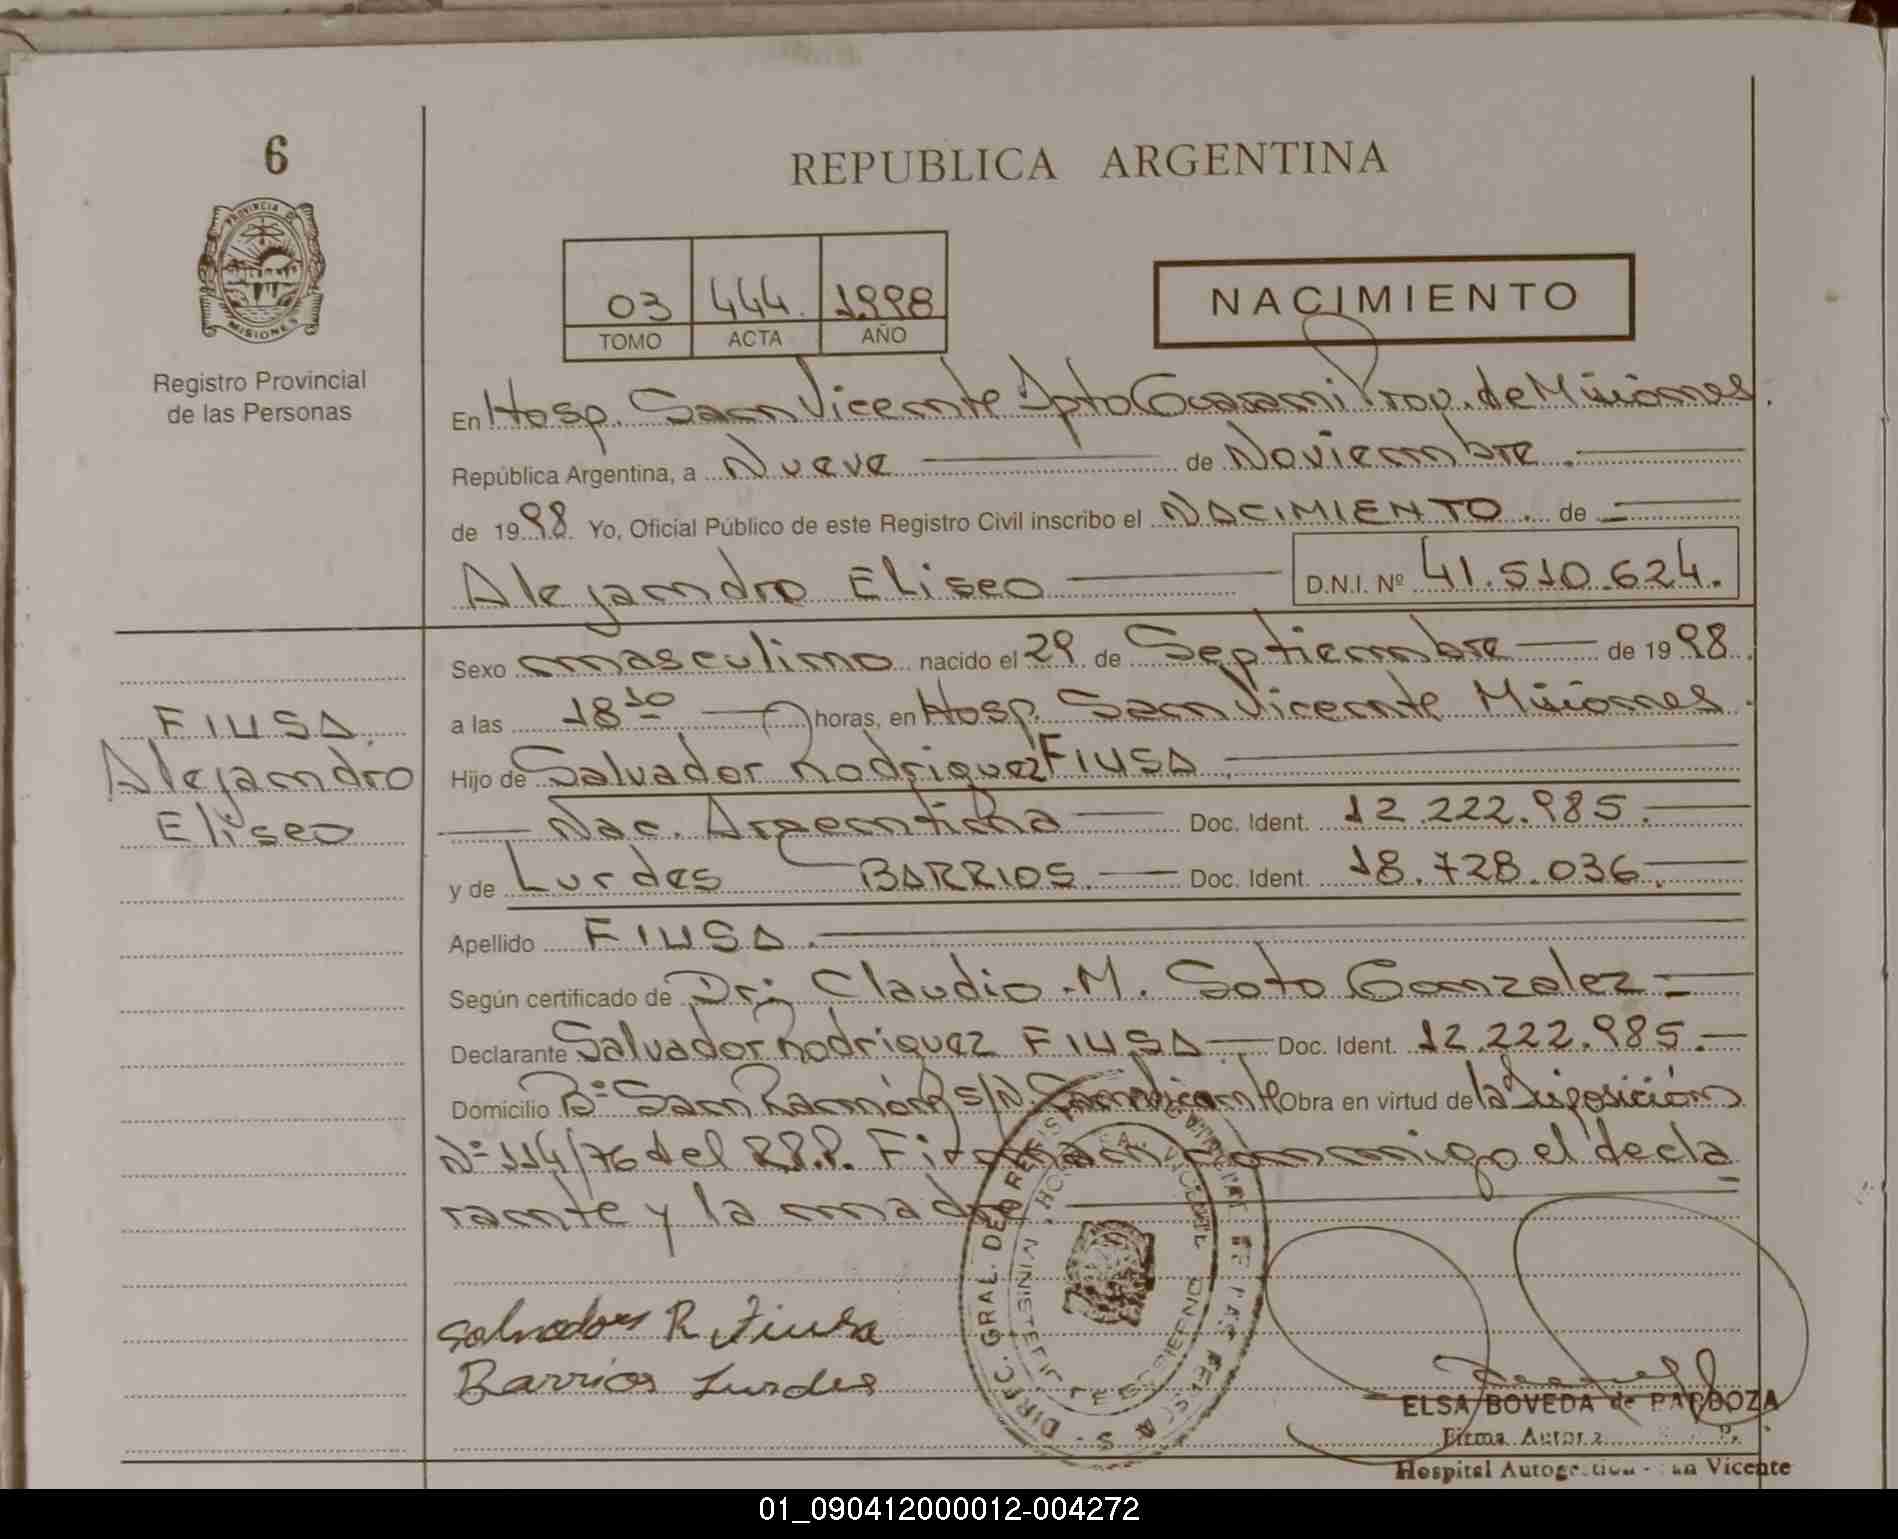 6
PROVINCIA DE
MISIONES
Registro Provincial
de las Personas
REPUBLICA ARGENTINA
03 444. 1998
TOMO ACTA AÑO
NACIMIENTO
En Hosp. San Vicente Dpto Guarani Prov. de Misiones.
República Argentina, a Nueve de Noviembre.
de 1998. Yo, Oficial Público de este Registro Civil inscribo el NACIMIENTO. de
Alejandro Eliseo D.N.I. Nº 41.510.624.
Sexo masculino nacido el 29 de Septiembre de 1998.
a las 18 10 horas, en Hosp. San Vicente Misiones.
Hijo de Salvador Rodriguez FIUSA
Nac. Argentina Doc. Ident. 12.222.985.
y de Lurdes BARRIOS. Doc. Ident. 18.728.036.
Apellido FIUSA.
Según certificado de Dr: Claudio M. Soto Gonzalez
Declarante Salvador Rodriguez FIUSA Doc. Ident. 12.222.985.
Domicilio Bº San Ramón s/n. San Vicente Obra en virtud de la Disposición
Nº 114/76 del R.P.P. Firman conmigo el decla
rante y la madre
FIUSA.
Alejandro
Eliseo
Salvador R Fiusa
Barrios Lurdes
DIREC. GRAL. DE REGIST
ELSA BOVEDA de PARDOZA
Firma
Hospital Vicente
01_090412000012-004272